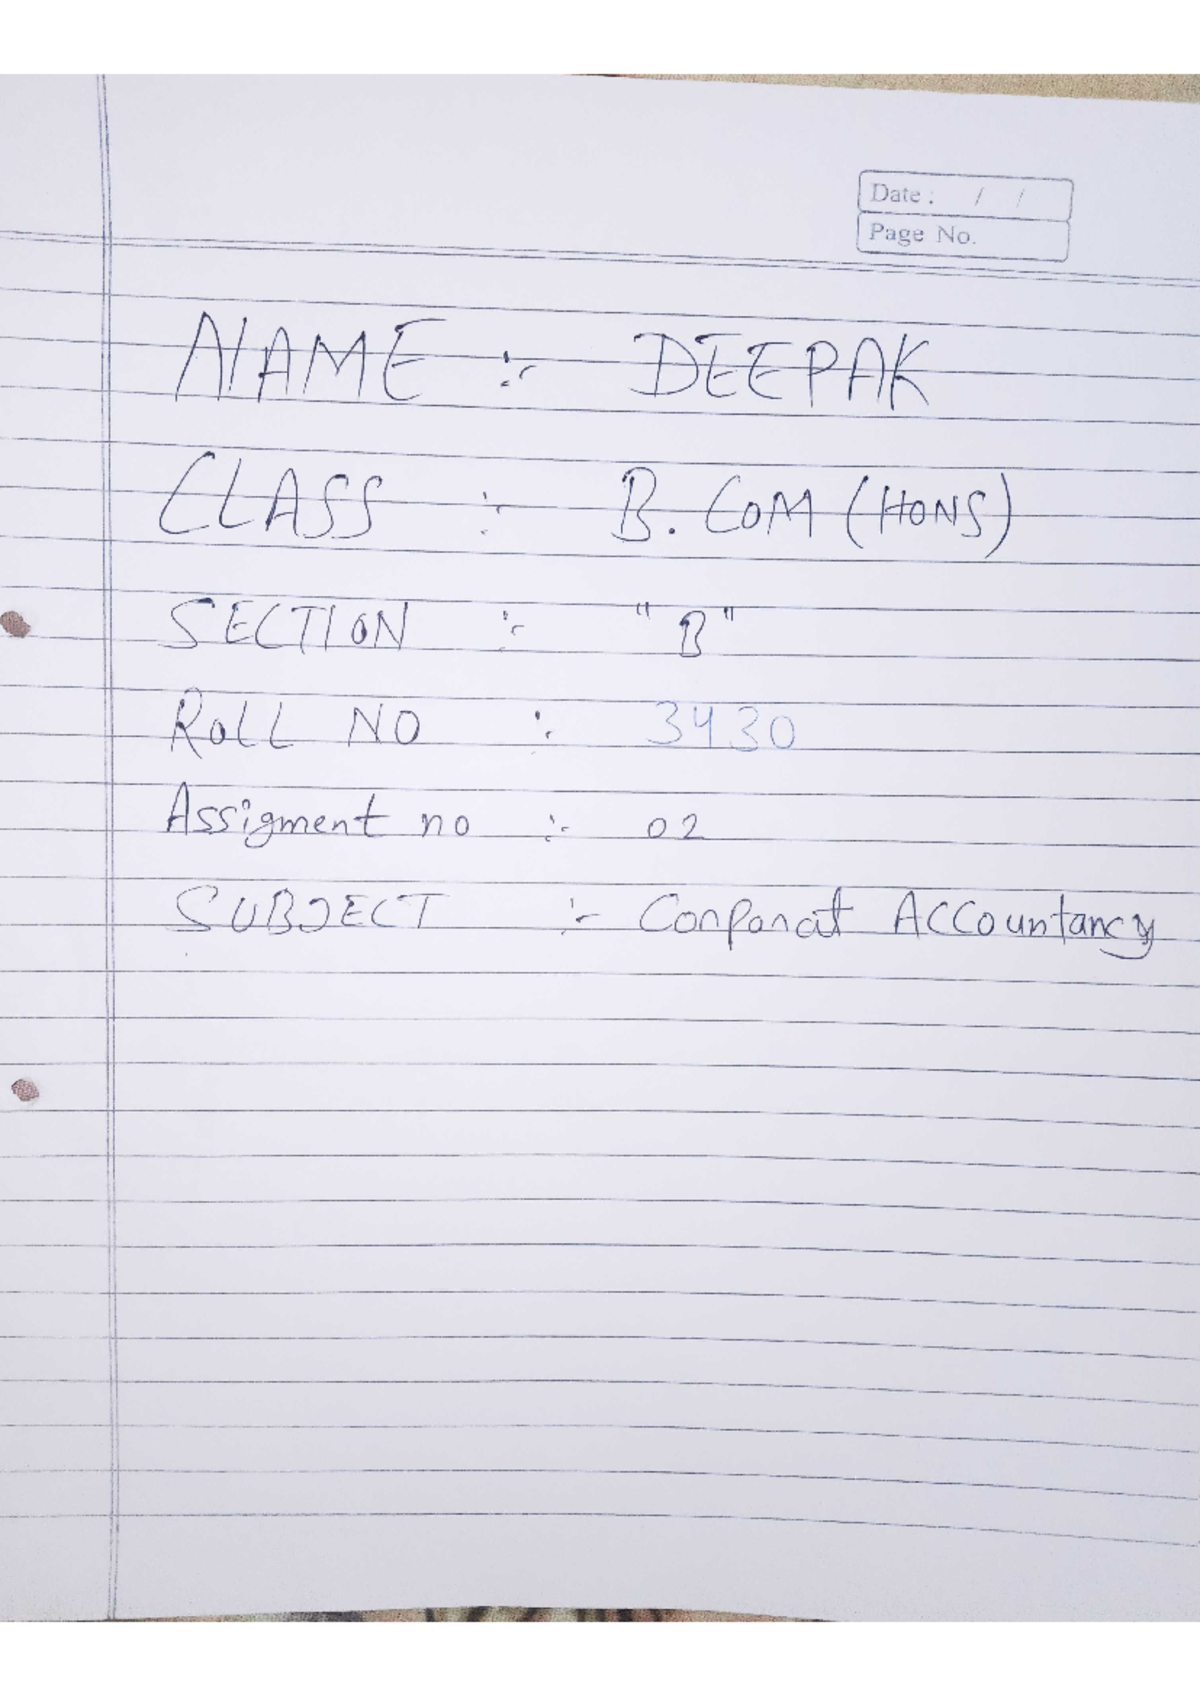 Date : / /
Page No.
NAME :- DEEPAK
CLASS :- B. COM (HONS)
SECTION :- "B"
ROLL NO : 3430
Assigment no :- 02
SUBJECT :- Corporat ACCountancy